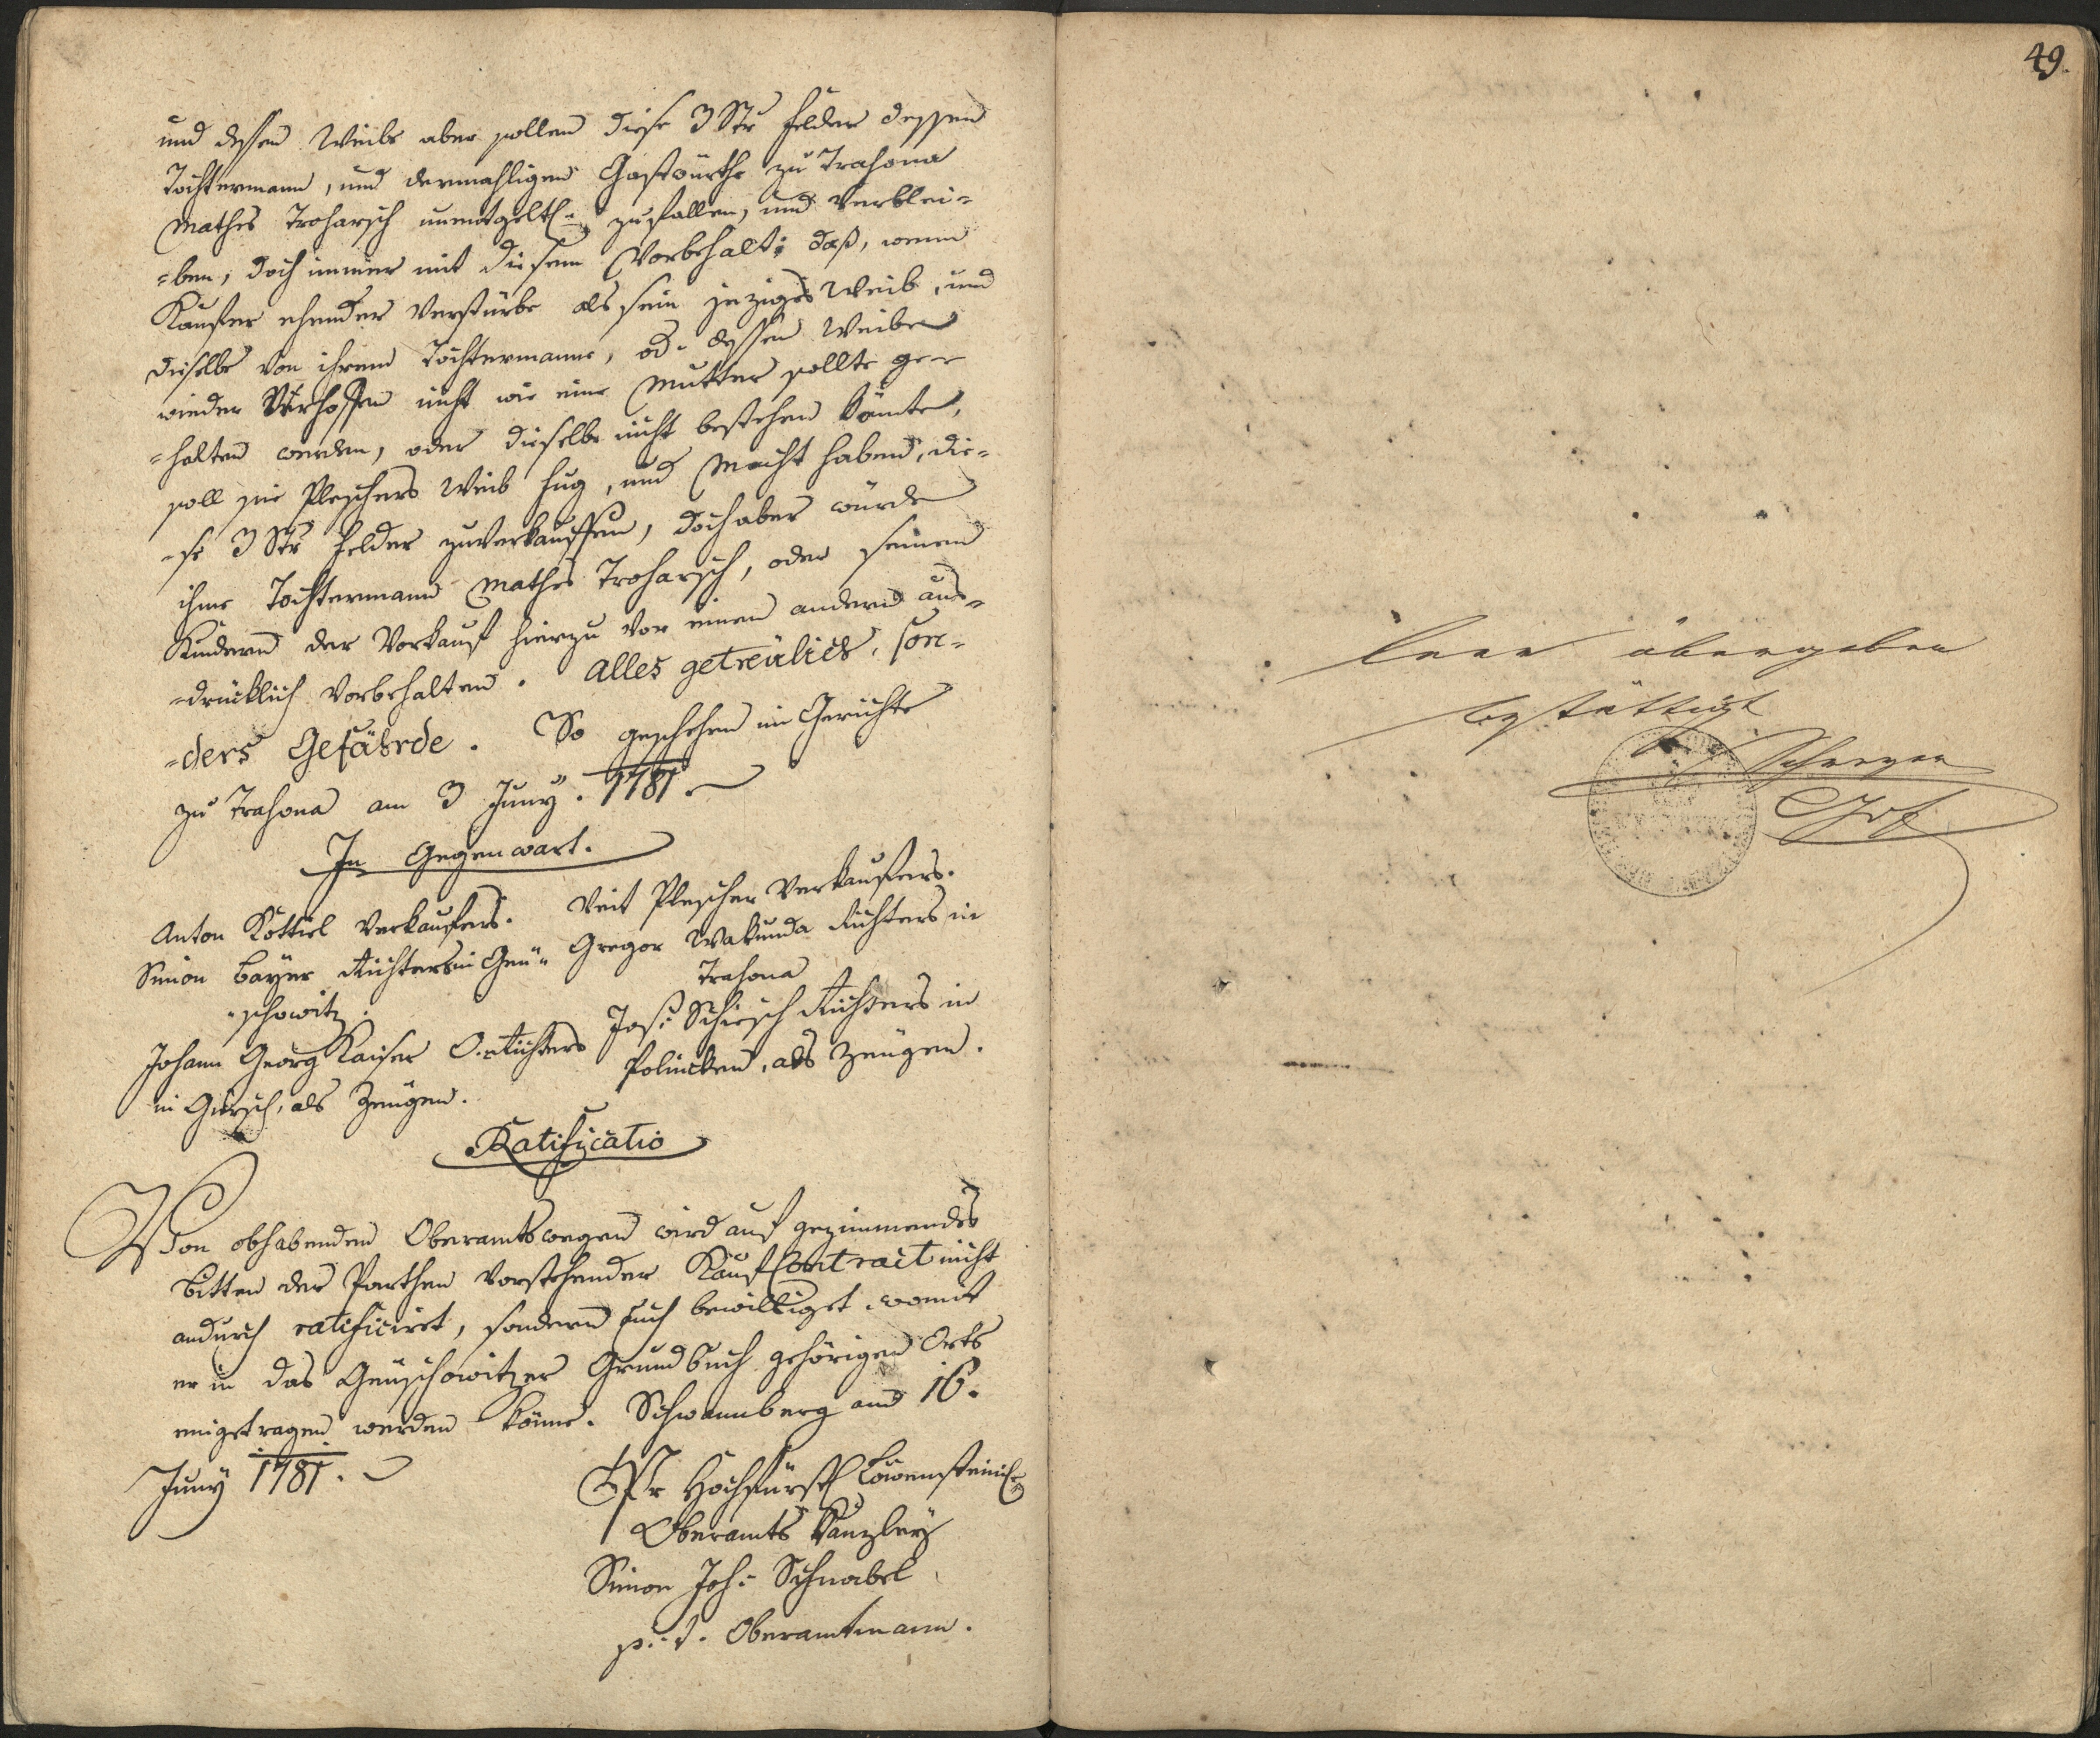 und dessen Weibs aber sollen diese 3 Str Felder dessen
Tochtermann, und dermahligen Gastwürthe zu Trahona
Mathes Troharsch unentgeltl: zufallen, und verblei=
=ben, doch immer mit diesem Vorbehalt: daß, wenn
Kaufer ehender verstürbe als sein jeziges Weib, und
dieselbe von ihrem Tochtermanne, od: dessen Weibe
wieder Verhoffen nicht wie eine Mutter sollte ge=
=halten werden, oder dieselbe nicht bestehen könnte,
soll sie Pleschers Weib fug, und Macht haben, die=
=se 3 Str Felder zuverkauffen, doch aber würde
ihme Tochtermann Mathes Troharsch, oder seinen
Kindern der Vorkauf hierzu vor einem andern aus=
=drücklich Vorbehalten. Alles getreülich, son=
=ders Gefährde. So geschehen in Gerichte
zu Trahona am 3 Juny. 1781.
In Gegenwart.
Anton Köttiel Verkaufers. Veit Plescher Verkaufers.
Simon Bayer Richters in Geü= Gregor Wakunda Richters in
=schowitz. Trahona
Johann Georg Kaiser O. Richters Jos: Schirsch Richters in
in Girsch, als Zeugen. Polincken, als Zeugen.
Ratificatio
Von obhabenden Oberamtswegen wird auf geziemmendes
Bitten der Parthen vorstehender Kauf Contract nicht
andurch ratificiret, sondern auch bewilliget womit
er in das Geuschowitzer Grundbuch gehörigen Orts
eingetragen werden könne. Schwannberg am 16.
Juny 1781.
Hochfürstl Löwensteinl:
Oberamts Kanzley
Simon Joh: Schnabel
p: t. Oberamtmann.
49.
Leer übergeben
bestättigt